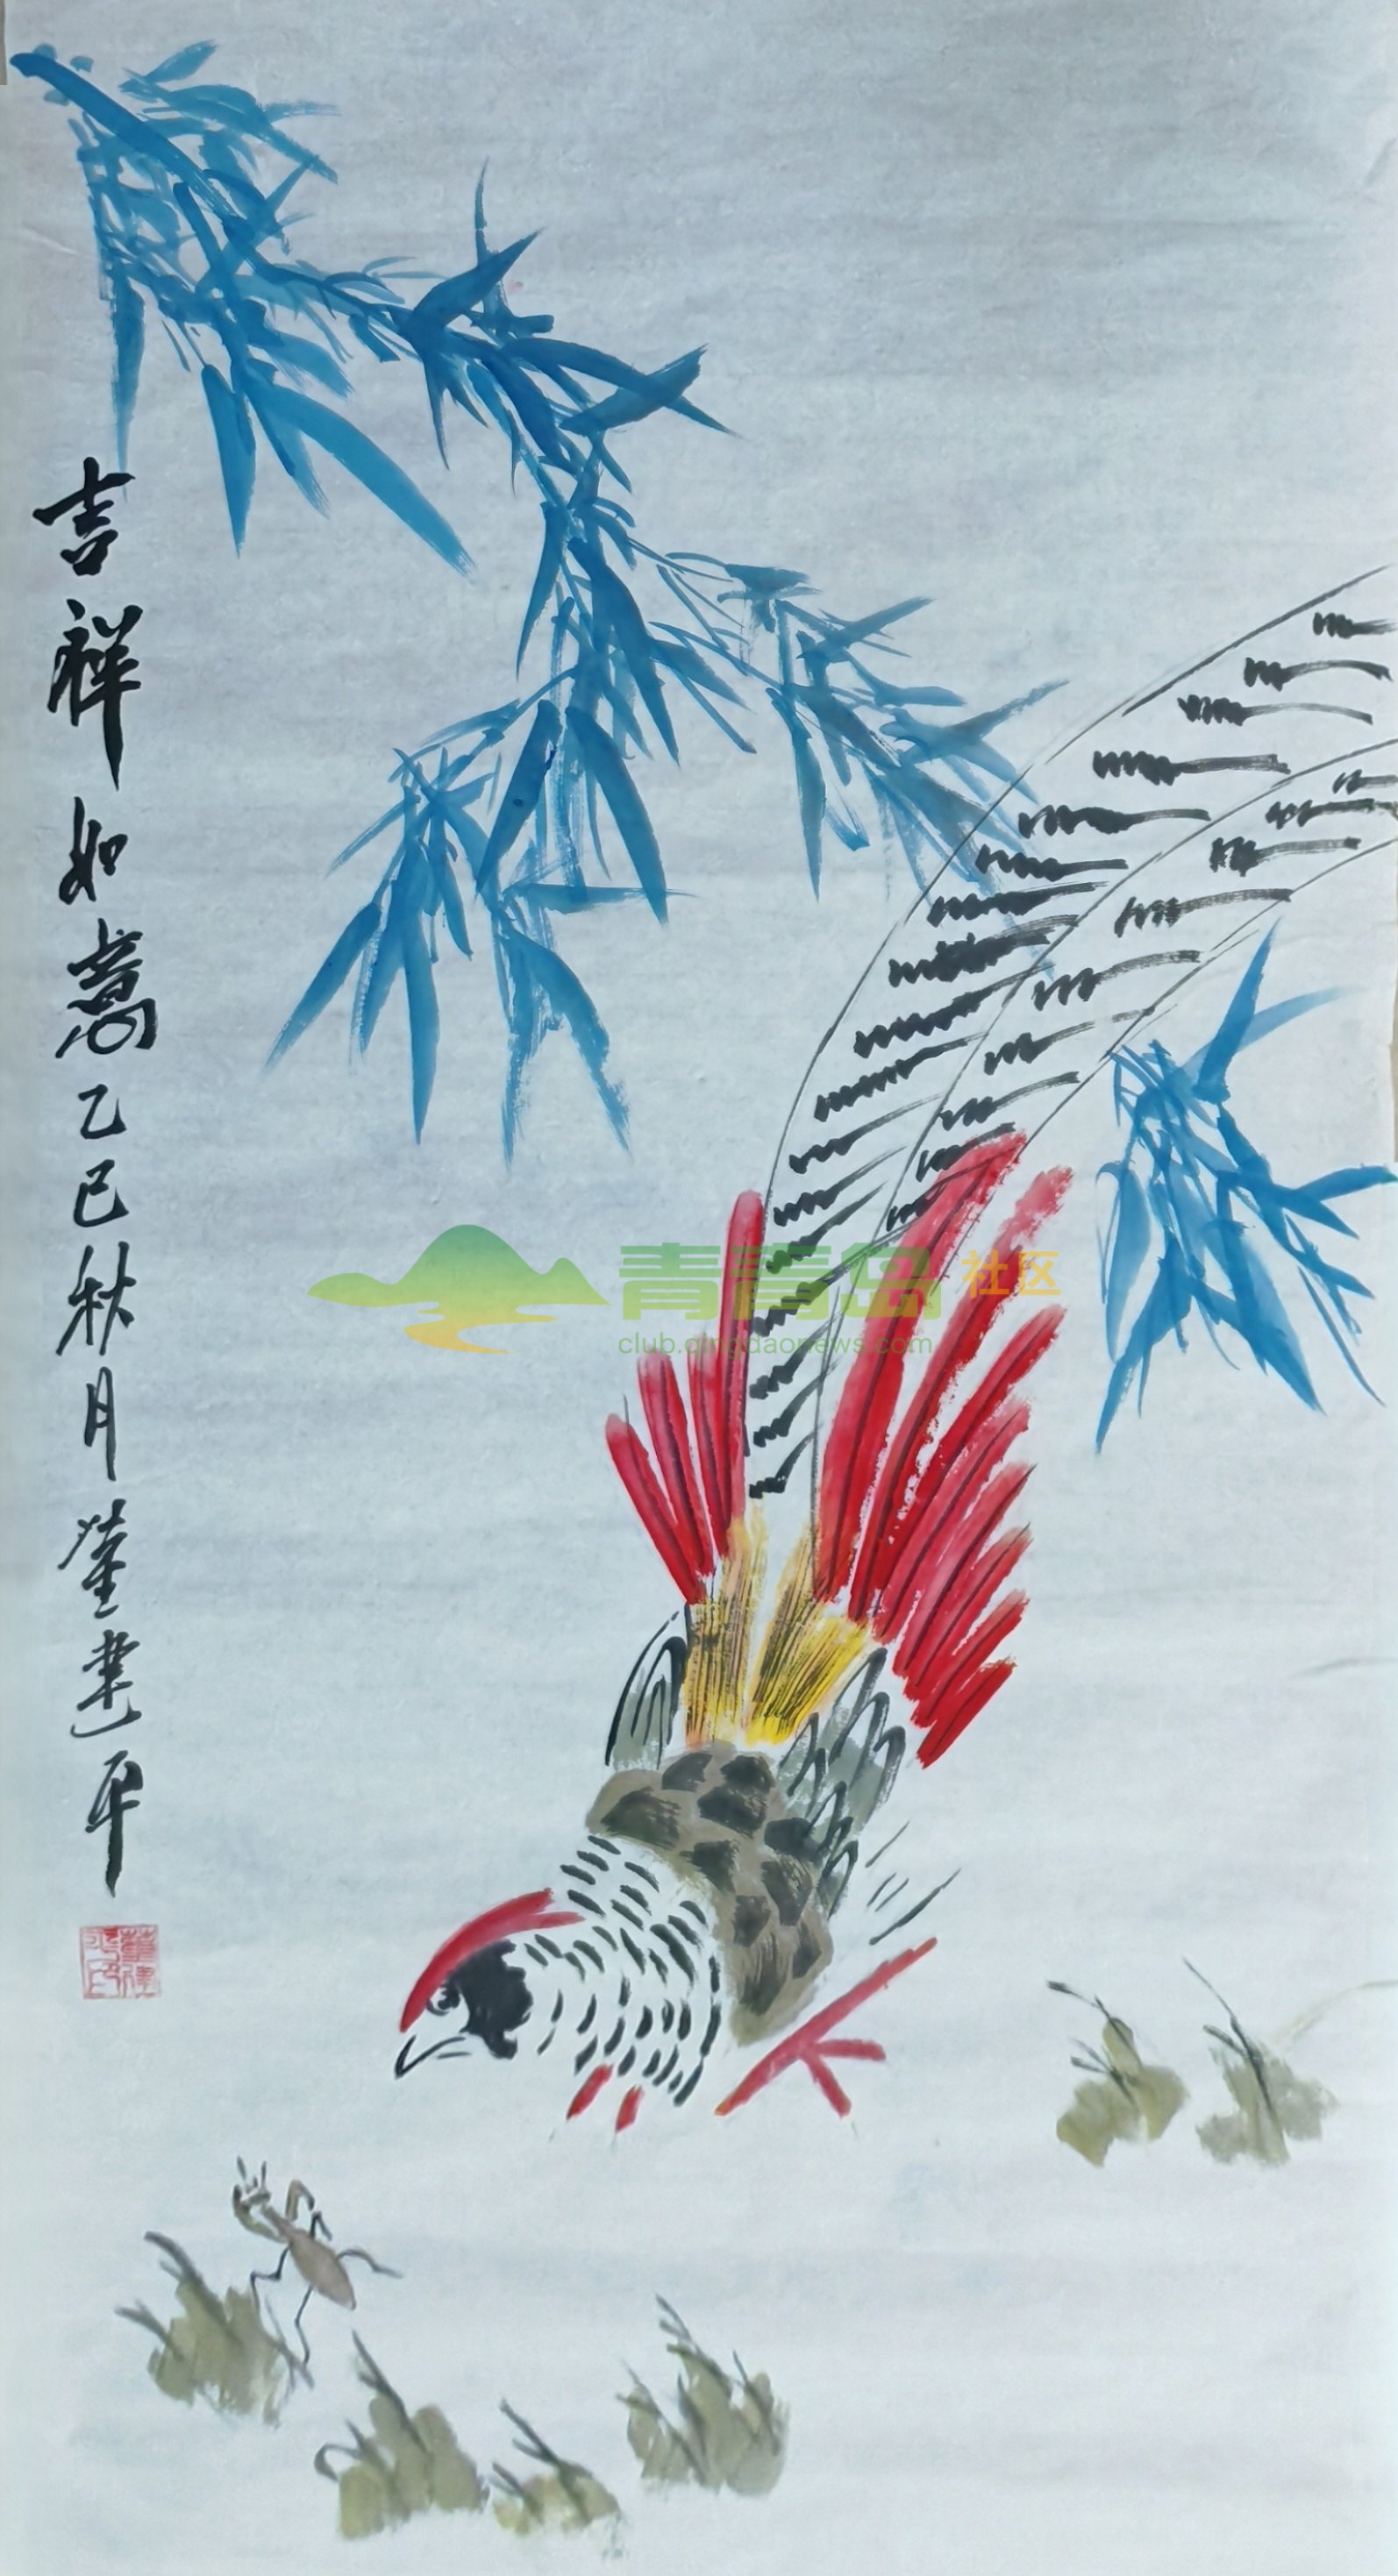 吉祥如意乙巳秋月董建平
青青岛社区
club.qingdaonews.com